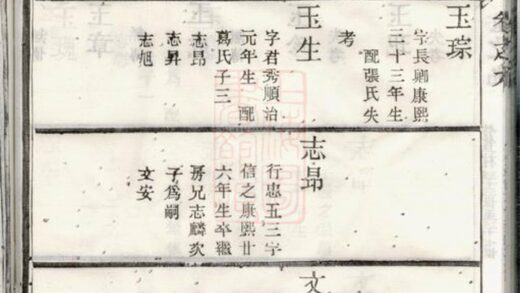 卷之九
玉琮
字長卿康熙
三十三年生
配張氏失
考
玉生
字君秀順治
元年生 配
葛氏子三
志昂
志昇
志旭
志昂
行忠五三字
信之康熙廿
六年生卒繼
房兄志麟次
子為嗣
文安
文